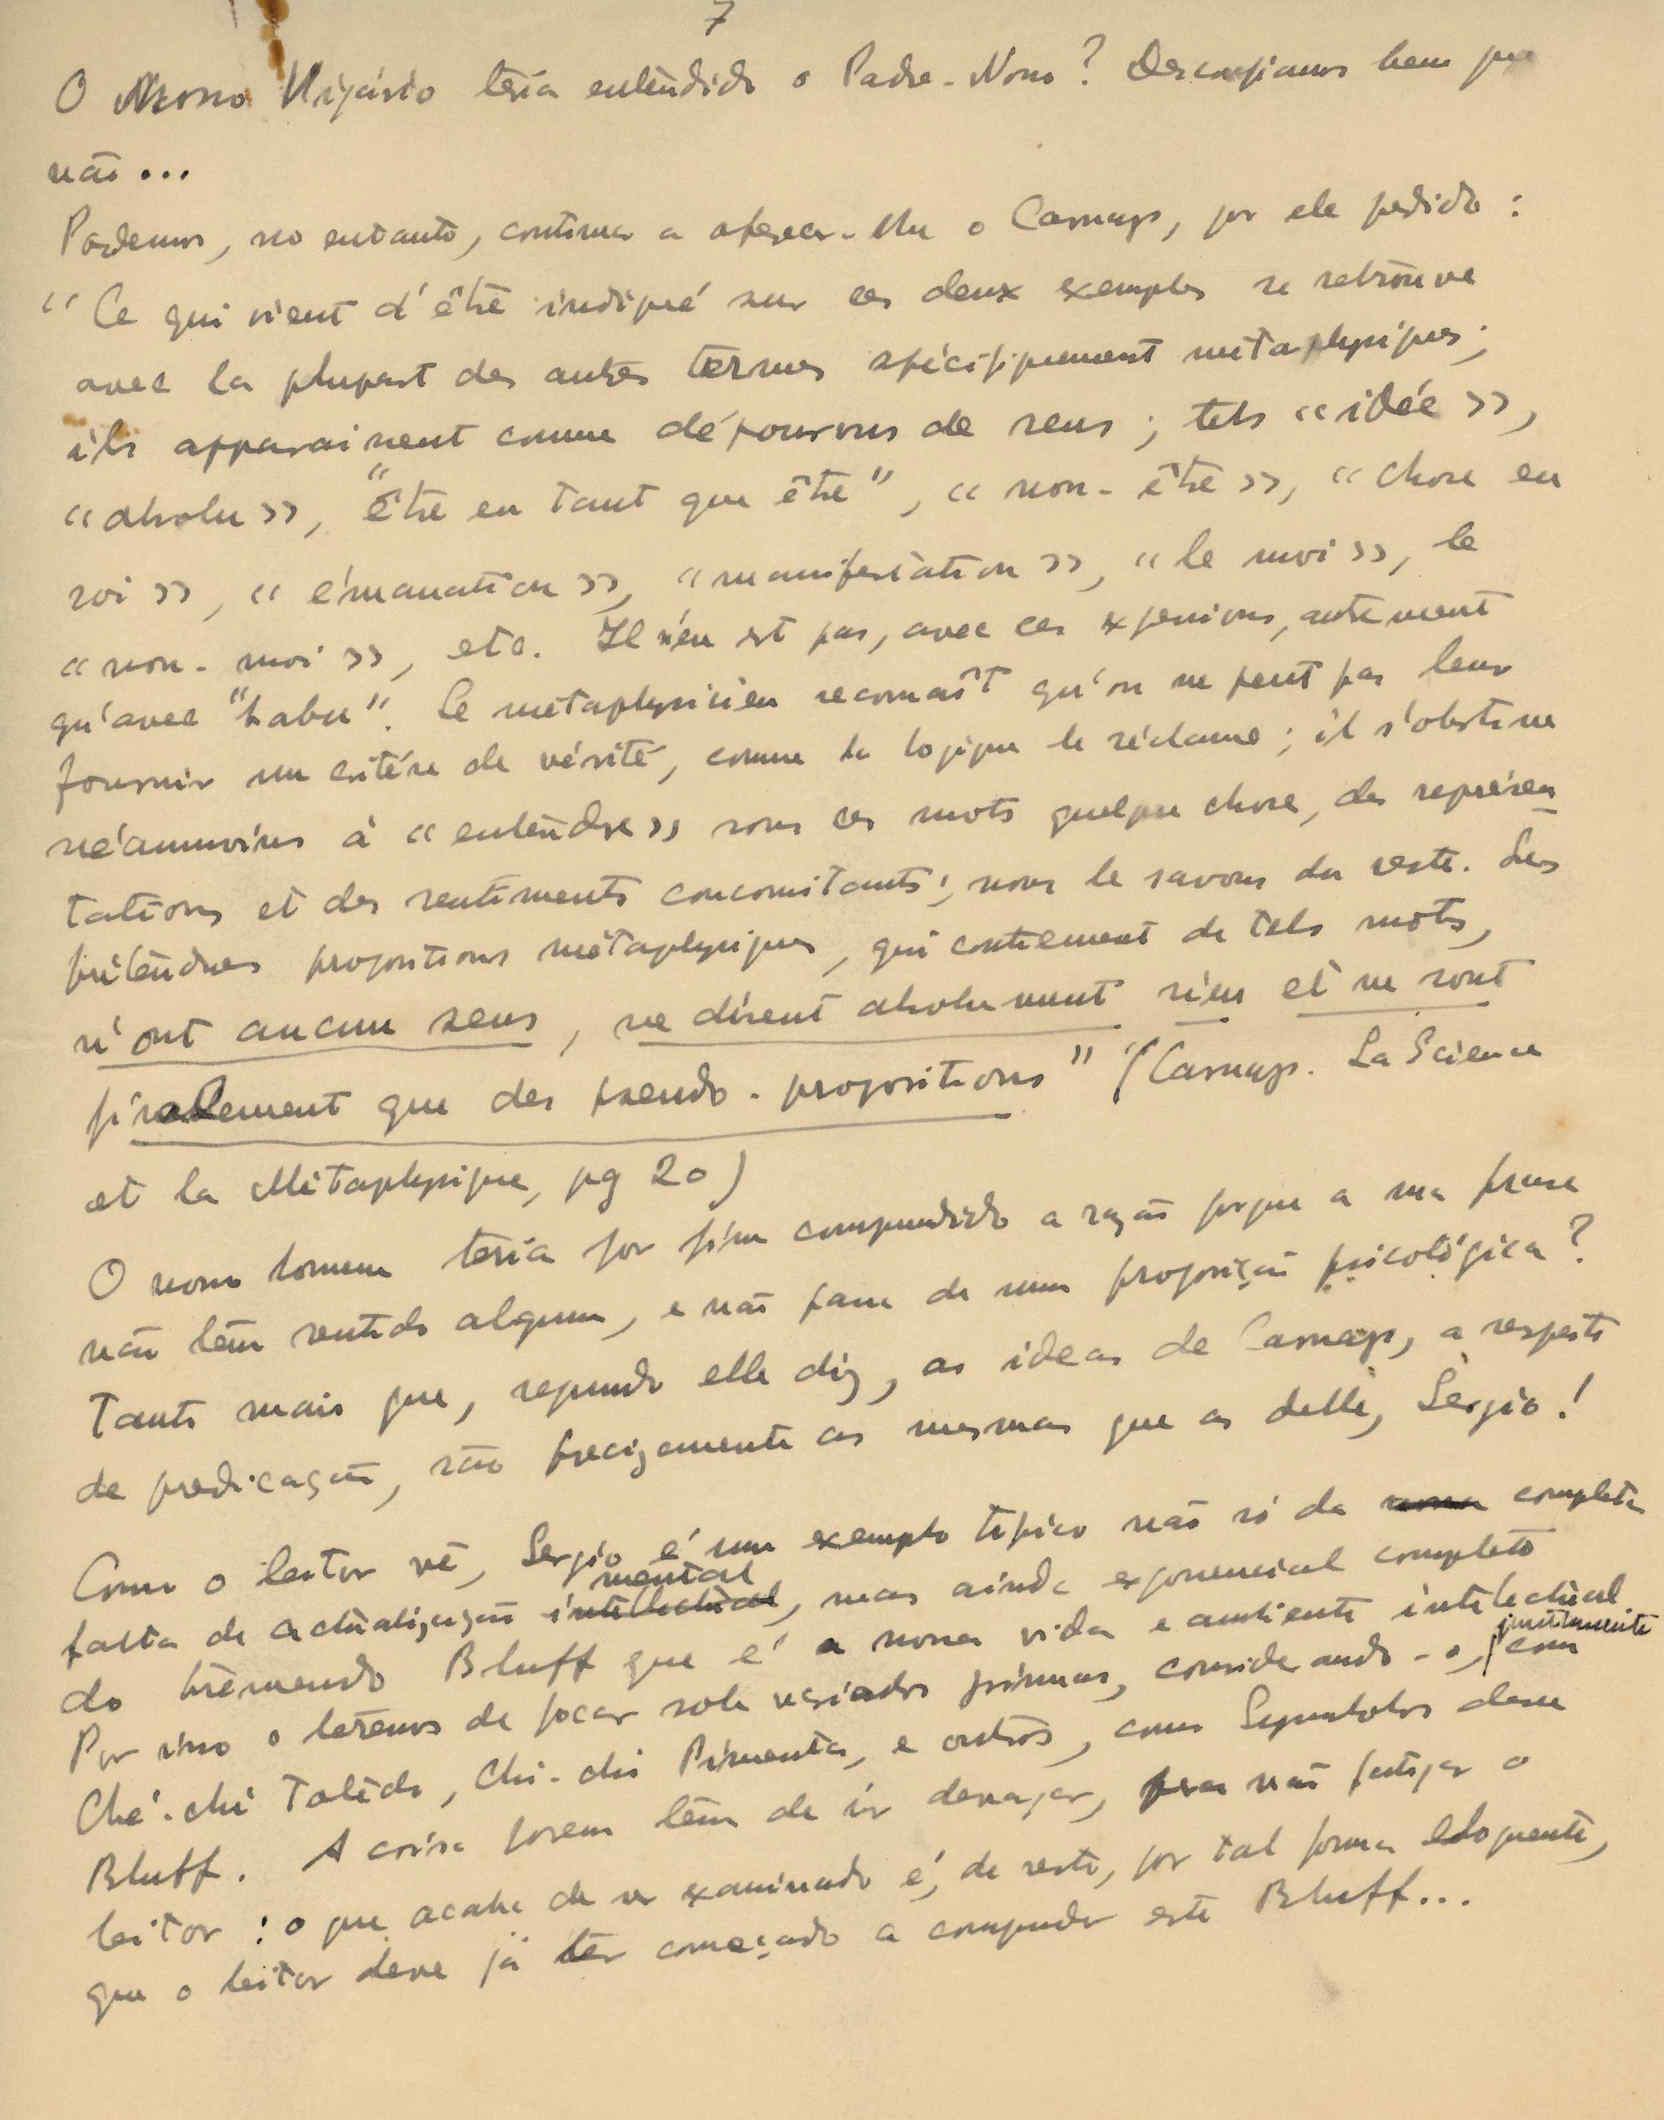 7
O Nosso Migásio teria entendido o Padre-Nosso? Desconfiamos bem que
não...
Podemos, no entanto, continuar a oferecer-lhe o Carnap, por ele pedido:
"Ce qui vient d'être indiqué sur ces deux exemples se retrouve
avec la plupart des autres termes spécifiquement métaphysiques;
ils apparaissent comme dépourvus de sens; tels «idée»,
«absolu», "être en tant que être", «non-être», «chose en
soi», «émanation», «manifestation», «le moi», le
«non-moi», etc. Il n'en est pas, avec ces expressions, autrement
qu'avec "babu". Le métaphysicien reconnaît qu'on ne peut pas leur
fournir un critére de vérité, comme la logique le réclame; il s'obstine
néanmoins à «entendre» sous ces mots quelque chose, des représen
tations et des sentiments concomitants; nous le savons du reste. Les
prétendues propositions métaphysiques, qui contiennent de tels mots,
n'ont aucun sens, ne disent absolument rien et ne sont
finalement que des pseudo-propositions" (Carnap. La Science
et la Métaphysique, pg 20)
O nosso homem teria por fim compreendido a razão porque a sua frase
não têm sentido algum, e não passa de uma proposição psicológica?
Tanto mais que, segundo elle diz, as ideas de Carnap, a respeito
de predicação, são precizamente as mesmas que as delle, Sérgio!
Como o leitor vê, Sergio é um exemplo tipico não só da uma completa
falta de actualização intellectual mental, mas ainda exponencial completo
do tremendo Bluff que é a nossa vida e ambiente intelectual
Por isso o teremos de focar sob variados prismas, considerando-o, juntamente com
Ché-ché Toledo, Chi-chi Pimenta, e outros, como Symbolos desse
Bluff. A coisa porem têm de ir devagar, para não fatigar o
leitor: o que acaba de ser examinado é, de resto, por tal forma eloquente,
que o leitor deve já ter começado a compreender este Bluff...